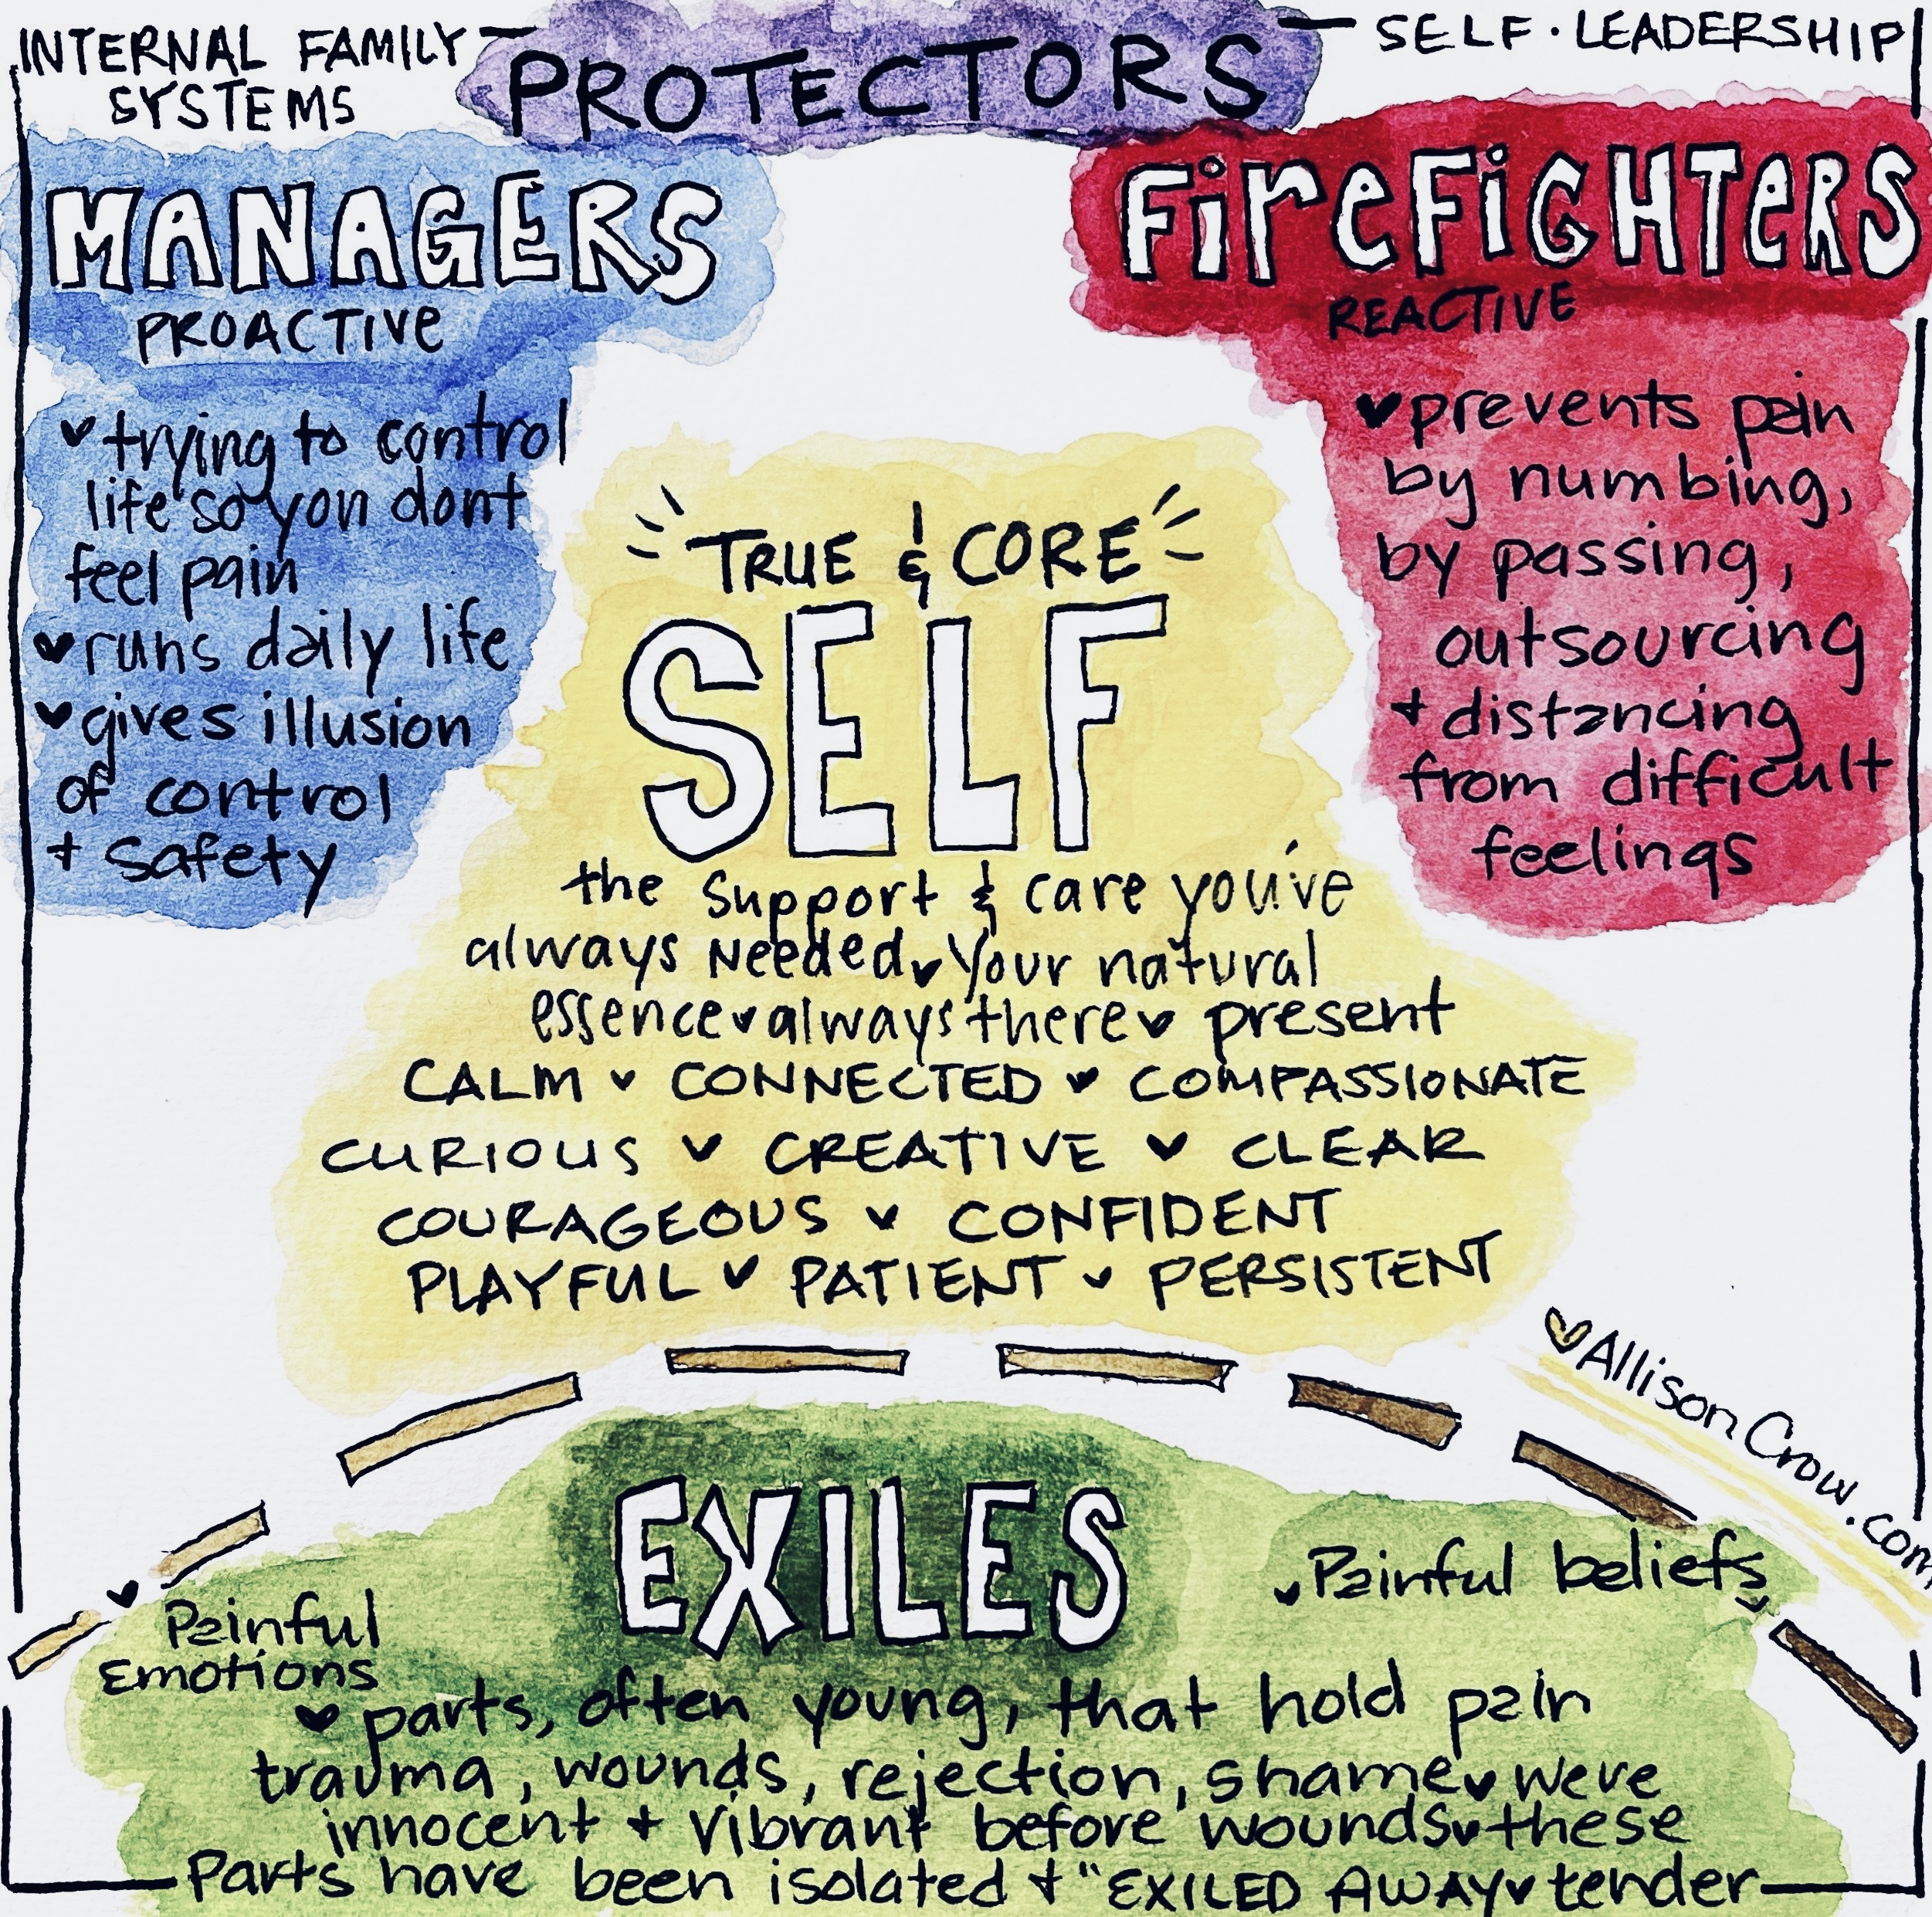 INTERNAL FAMILY SYSTEMS
PROTECTORS
SELF·LEADERSHIP
MANAGERS
PROACTIVE
trying to control
life so you dont
feel pain
runs daily life
gives illusion
of control
+ safety
FiReFiGHTeRS
REACTIVE
prevents pain
by numbing,
by passing,
outsourcing
+ distancing
from difficult
feelings
TRUE & CORE
SELF
the support & care you've
always Needed Your natural
essence always there present
CALM CONNECTED COMPASSIONATE
CURIOUS CREATIVE CLEAR
COURAGEOUS CONFIDENT
PLAYFUL PATIENT PERSISTENT
AllisonCrow.com
EXILES
Painful
Emotions
Painful beliefs
parts, often young, that hold pain
trauma, wounds, rejection, shame were
innocent + vibrant before wounds these
Parts have been isolated + "EXILED AWAY tender